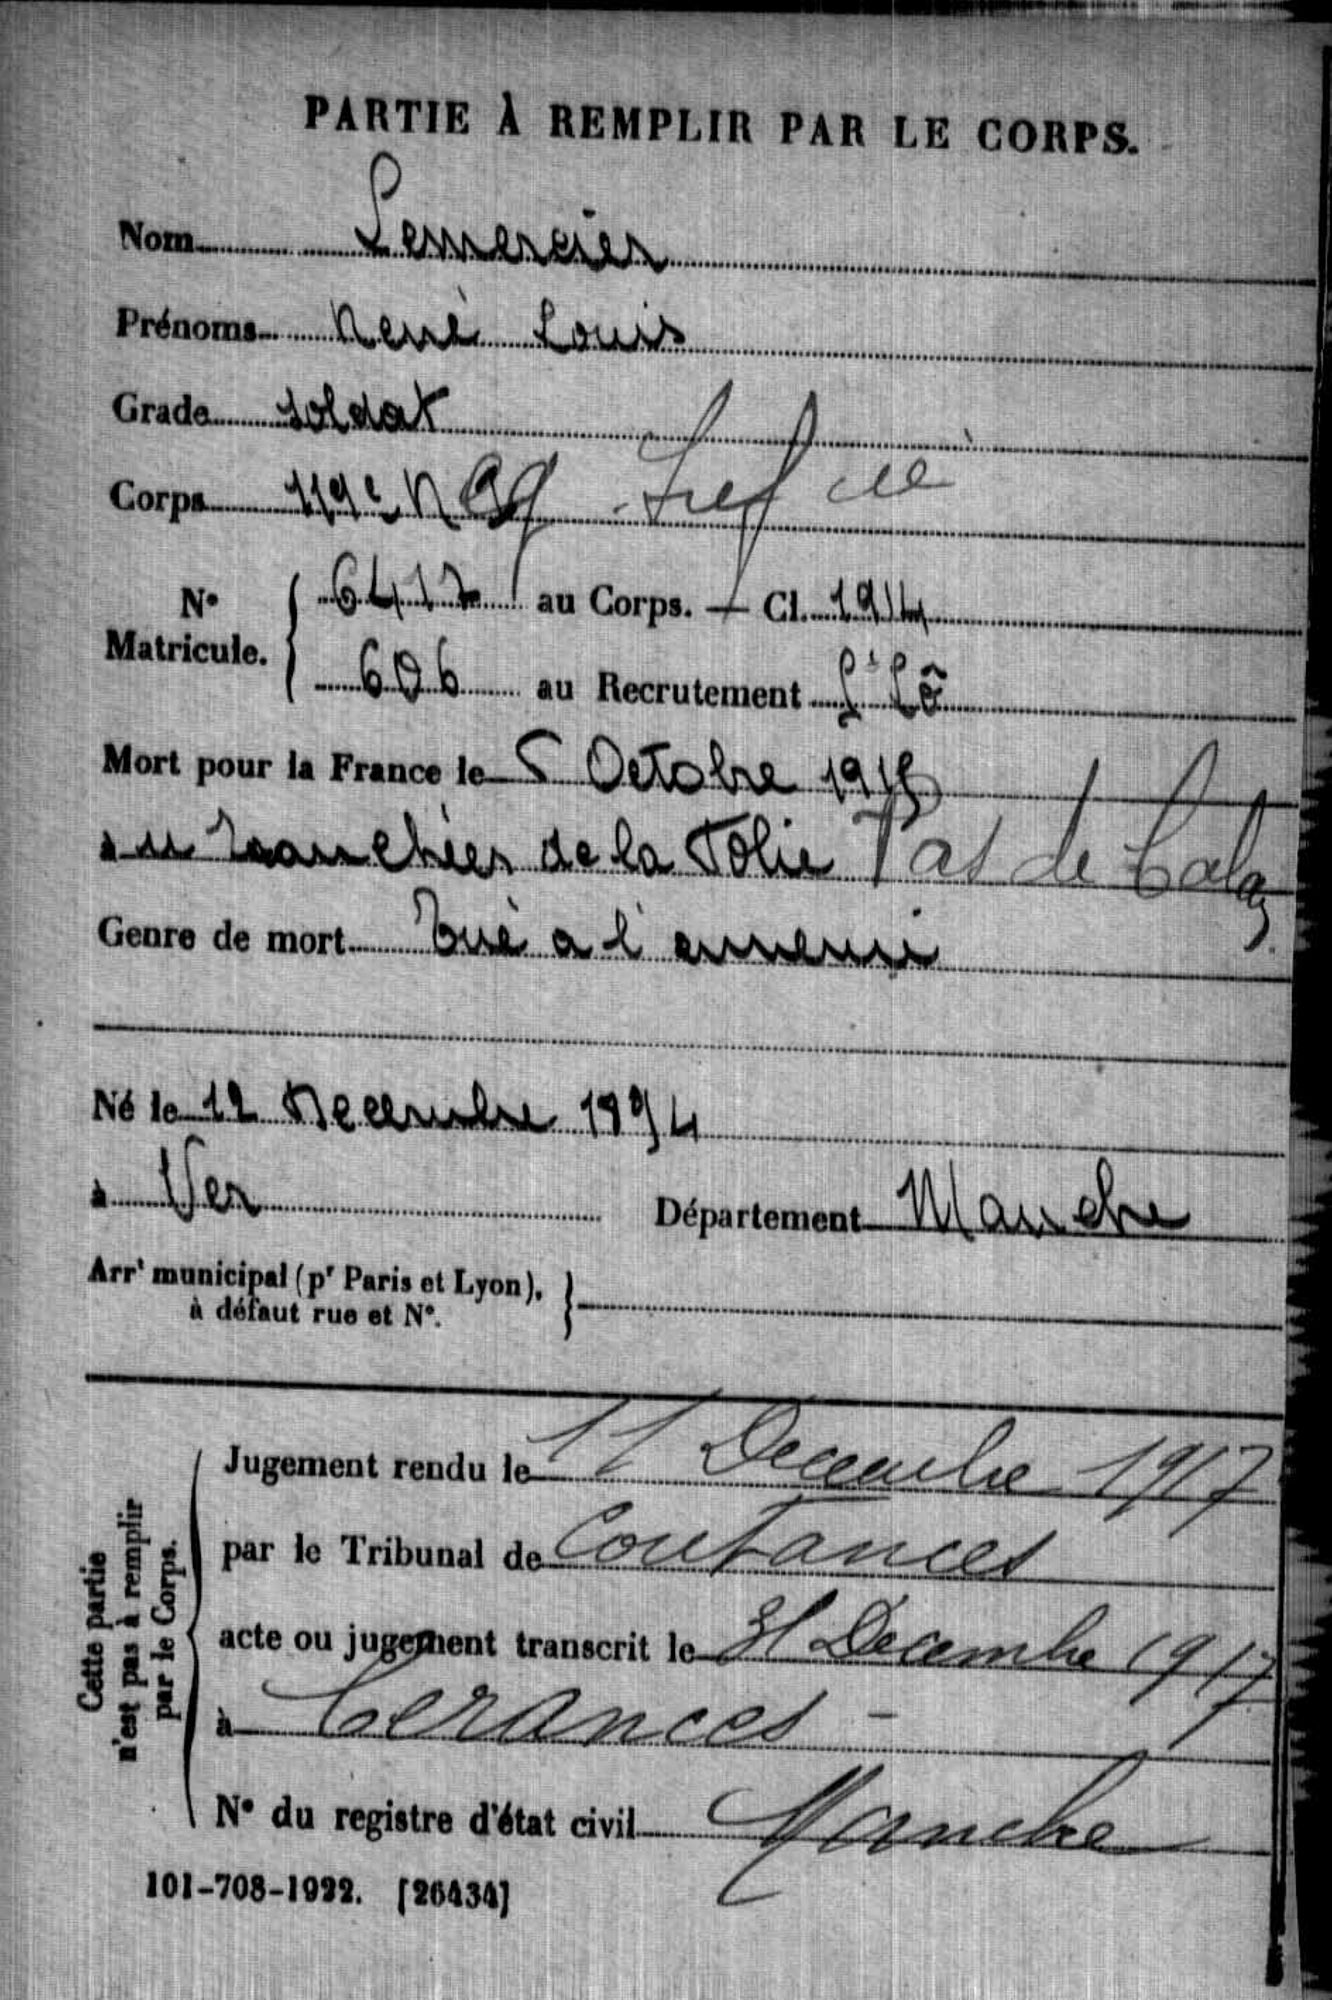 PARTIE À REMPLIR PAR LE CORPS.
Nom Lemercier
Prénoms René Louis
Grade soldat
Corps 119e Infie
N° Matricule. 6412 au Corps. — Cl. 1914
606 au Recrutement St Lô
Mort pour la France le 5 Octobre 1915
à tranchées de la Folie Pas de Calais
Genre de mort Tué a l'ennemi
Né le 12 Decembre 1894
à Ver Département Manche
Arrt municipal (pr Paris et Lyon),
à défaut rue et N°.
Cette partie
n'est pas à remplir
par le Corps.
Jugement rendu le 11 Decembre 1917
par le Tribunal de Coutances
acte ou jugement transcrit le 31 Decembre 1917
à Cerances -
N° du registre d'état civil Manche
101-708-1922. [26434]